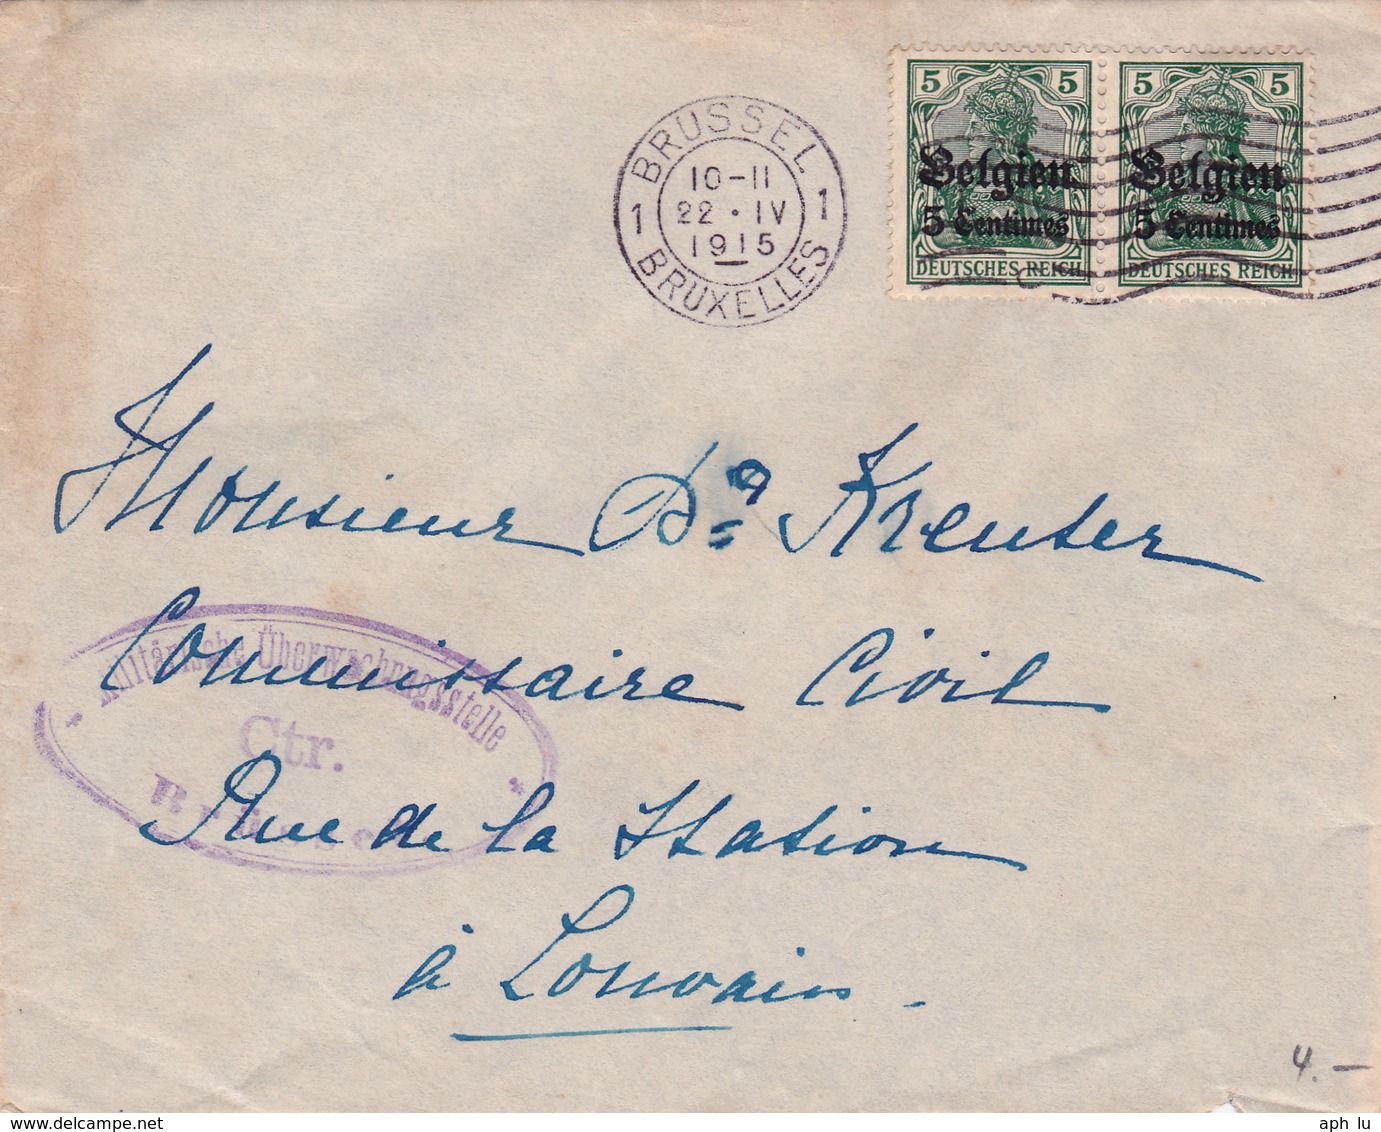 5 5 5 5
Belgien Belgien
5 Centimes 5 Centimes
DEUTSCHES REICH DEUTSCHES REICH
BRUSSEL
1 10-11 1
22 · IV
1915
BRUXELLES
Monsieur Dr Kreuter
Commissaire Civil
Rue de la Station
à Louvain -
Militärische Überwachungsstelle
Ctr.
4. —
www.delcampe.net
aph lu